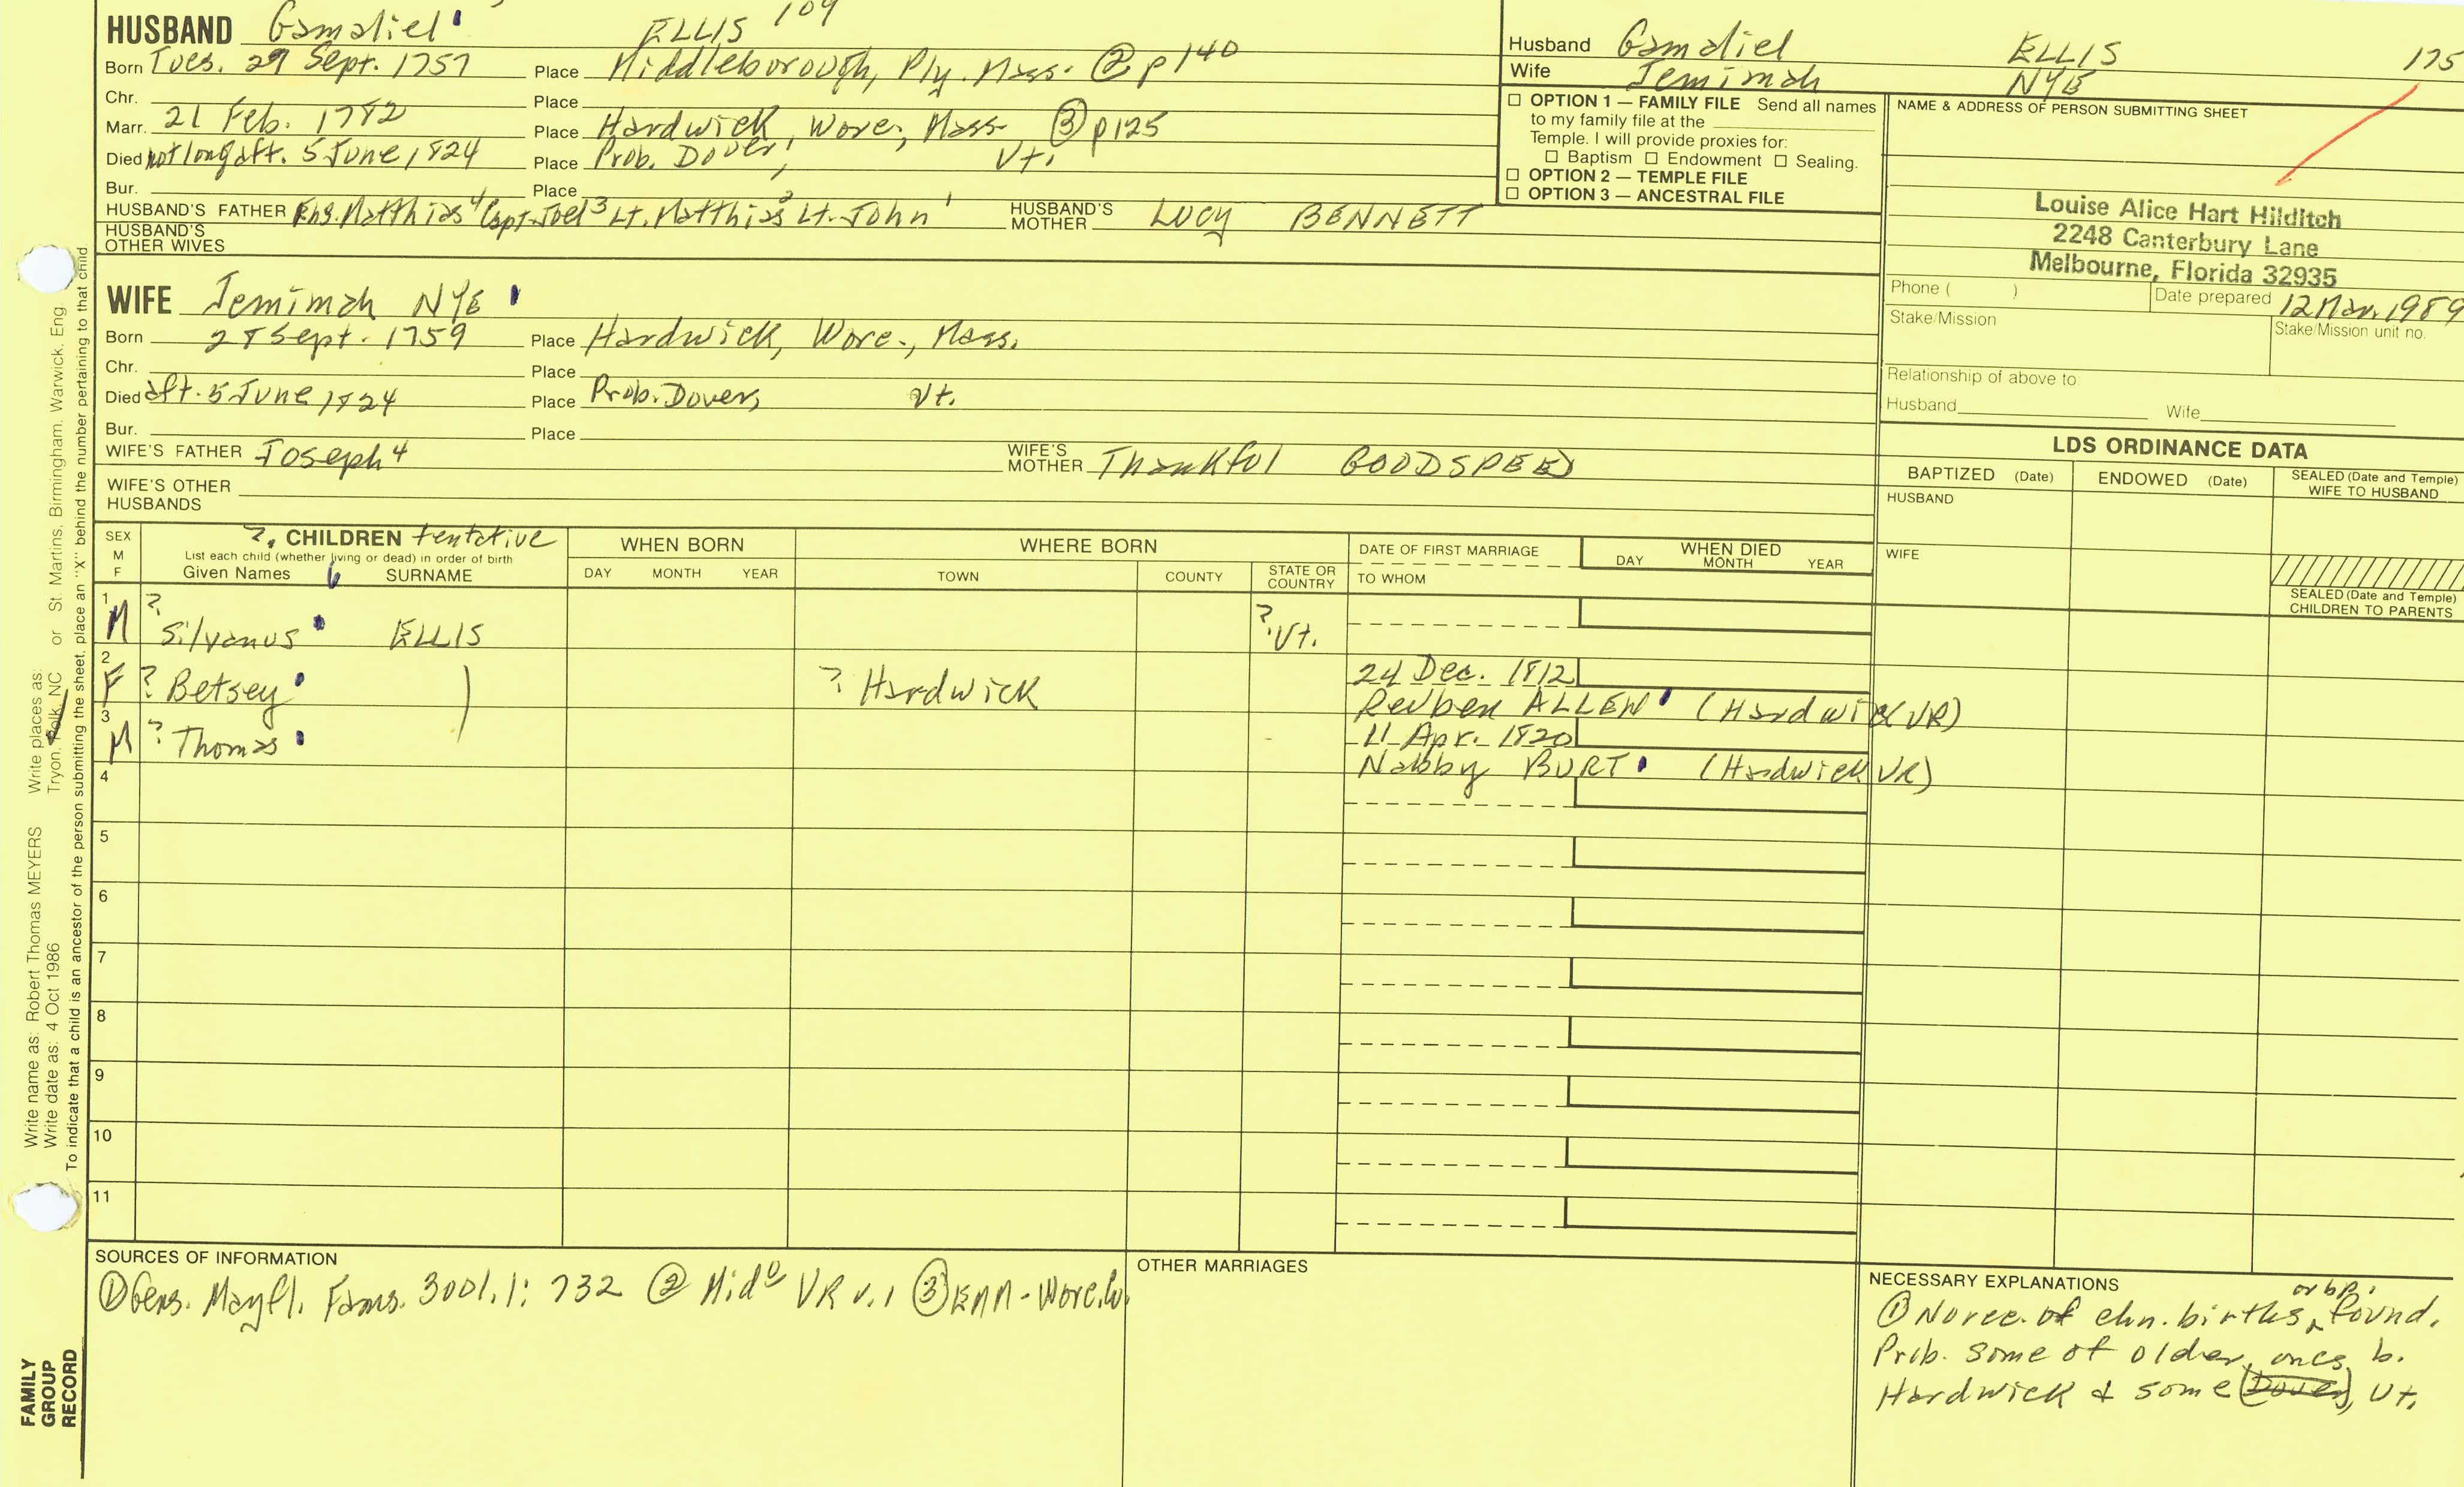 HUSBAND Gamaliel ELLIS 109
Born Tues. 29 Sept. 1757 Place Middleborough, Ply. Mass. ② p140
Chr. Place
Marr. 21 Feb. 1782 Place Hardwick, Worc., Mass ③ p125
Died not long aft. 5 June 1824 Place Prob. Dover, Vt.
Bur. Place
HUSBAND'S FATHER Eng. Matthias 4 Capt. Joel 3 Lt. Matthias 2 Lt. John 1 HUSBAND'S MOTHER Lucy BENNETT
HUSBAND'S OTHER WIVES
WIFE Jemimah NYE
Born 28 Sept. 1759 Place Hardwick, Worc., Mass.
Chr. Place
Died aft. 5 June 1824 Place Prob. Dover, Vt.
Bur. Place
WIFE'S FATHER Joseph 4 WIFE'S MOTHER Thankful GOODSPEED
WIFE'S OTHER HUSBANDS
Husband Gamaliel ELLIS 175
Wife Jemimah NYE
☐ OPTION 1 — FAMILY FILE Send all names
to my family file at the
Temple. I will provide proxies for:
☐ Baptism ☐ Endowment ☐ Sealing.
☐ OPTION 2 — TEMPLE FILE
☐ OPTION 3 — ANCESTRAL FILE
NAME & ADDRESS OF PERSON SUBMITTING SHEET
Louise Alice Hart Hilditch
2248 Canterbury Lane
Melbourne, Florida 32935
Phone ( ) Date prepared 12 Mar. 1989
Stake/Mission Stake/Mission unit no.
Relationship of above to
Husband Wife
LDS ORDINANCE DATA
BAPTIZED (Date) ENDOWED (Date) SEALED (Date and Temple) WIFE TO HUSBAND
HUSBAND
WIFE
SEALED (Date and Temple) CHILDREN TO PARENTS
SEX M F
?, CHILDREN tentative
List each child (whether living or dead) in order of birth
Given Names SURNAME
WHEN BORN
DAY MONTH YEAR
WHERE BORN
TOWN COUNTY STATE OR COUNTRY
DATE OF FIRST MARRIAGE
TO WHOM
WHEN DIED
DAY MONTH YEAR
1 M ? Silvanus ELLIS ? Vt.
2 F ? Betsey ? Hardwick 24 Dec. 1812
Reuben ALLEN (Hardwick VR)
3 M ? Thomas 11 Apr. 1820
Nabby BURT (Hardwick VR)
4
5
6
7
8
9
10
11
SOURCES OF INFORMATION
① Gens. Mayfl. Fams. 3001.1: 732 ② Mid° VR v.1 ③ EMM - Worc.
OTHER MARRIAGES
NECESSARY EXPLANATIONS
① No rec. of chn. births or bp. found.
Prob. some of older ones b.
Hardwick & some Dover, Vt.
Write name as: Robert Thomas MEYERS Write places as:
Write date as: 4 Oct 1986 Tryon, Polk, NC or St. Martins, Birmingham, Warwick, Eng
To indicate that a child is an ancestor of the person submitting the sheet, place an "X" behind the number pertaining to that child
FAMILY
GROUP
RECORD